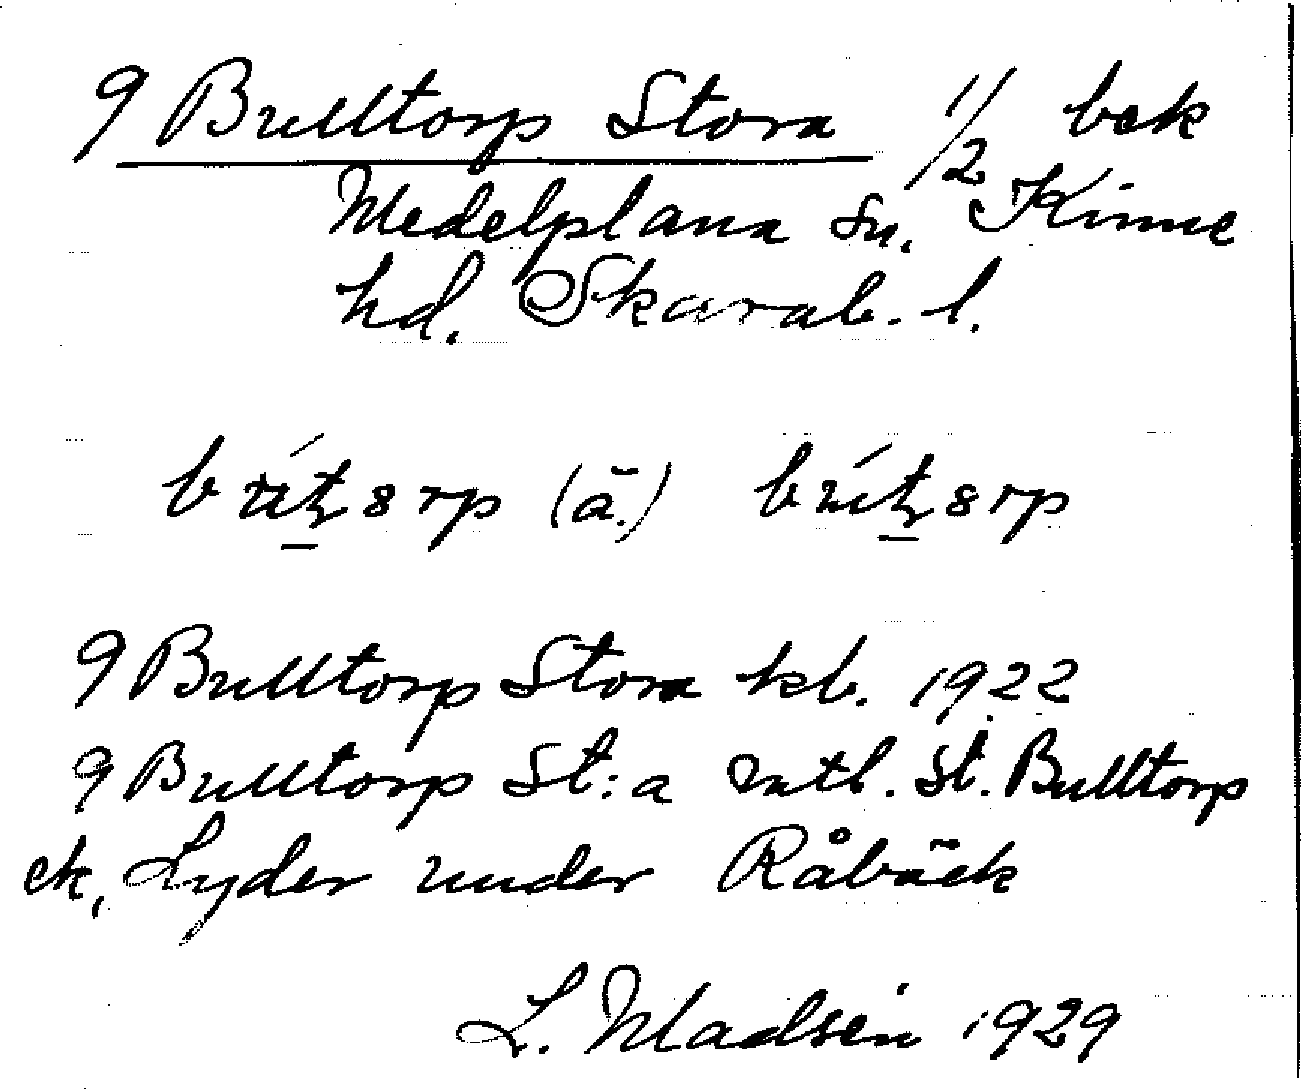 9 Bulltorp Stora 1/2 bek
Medelplana sn. Kinne
hd. Skarab. l.
(ä.)
9 Bulltorp Stora kb. 1922
9 Bulltorp St:a mtl. St. Bulltorp
ek, Lyder under Råbäck
L. Madsén 1929